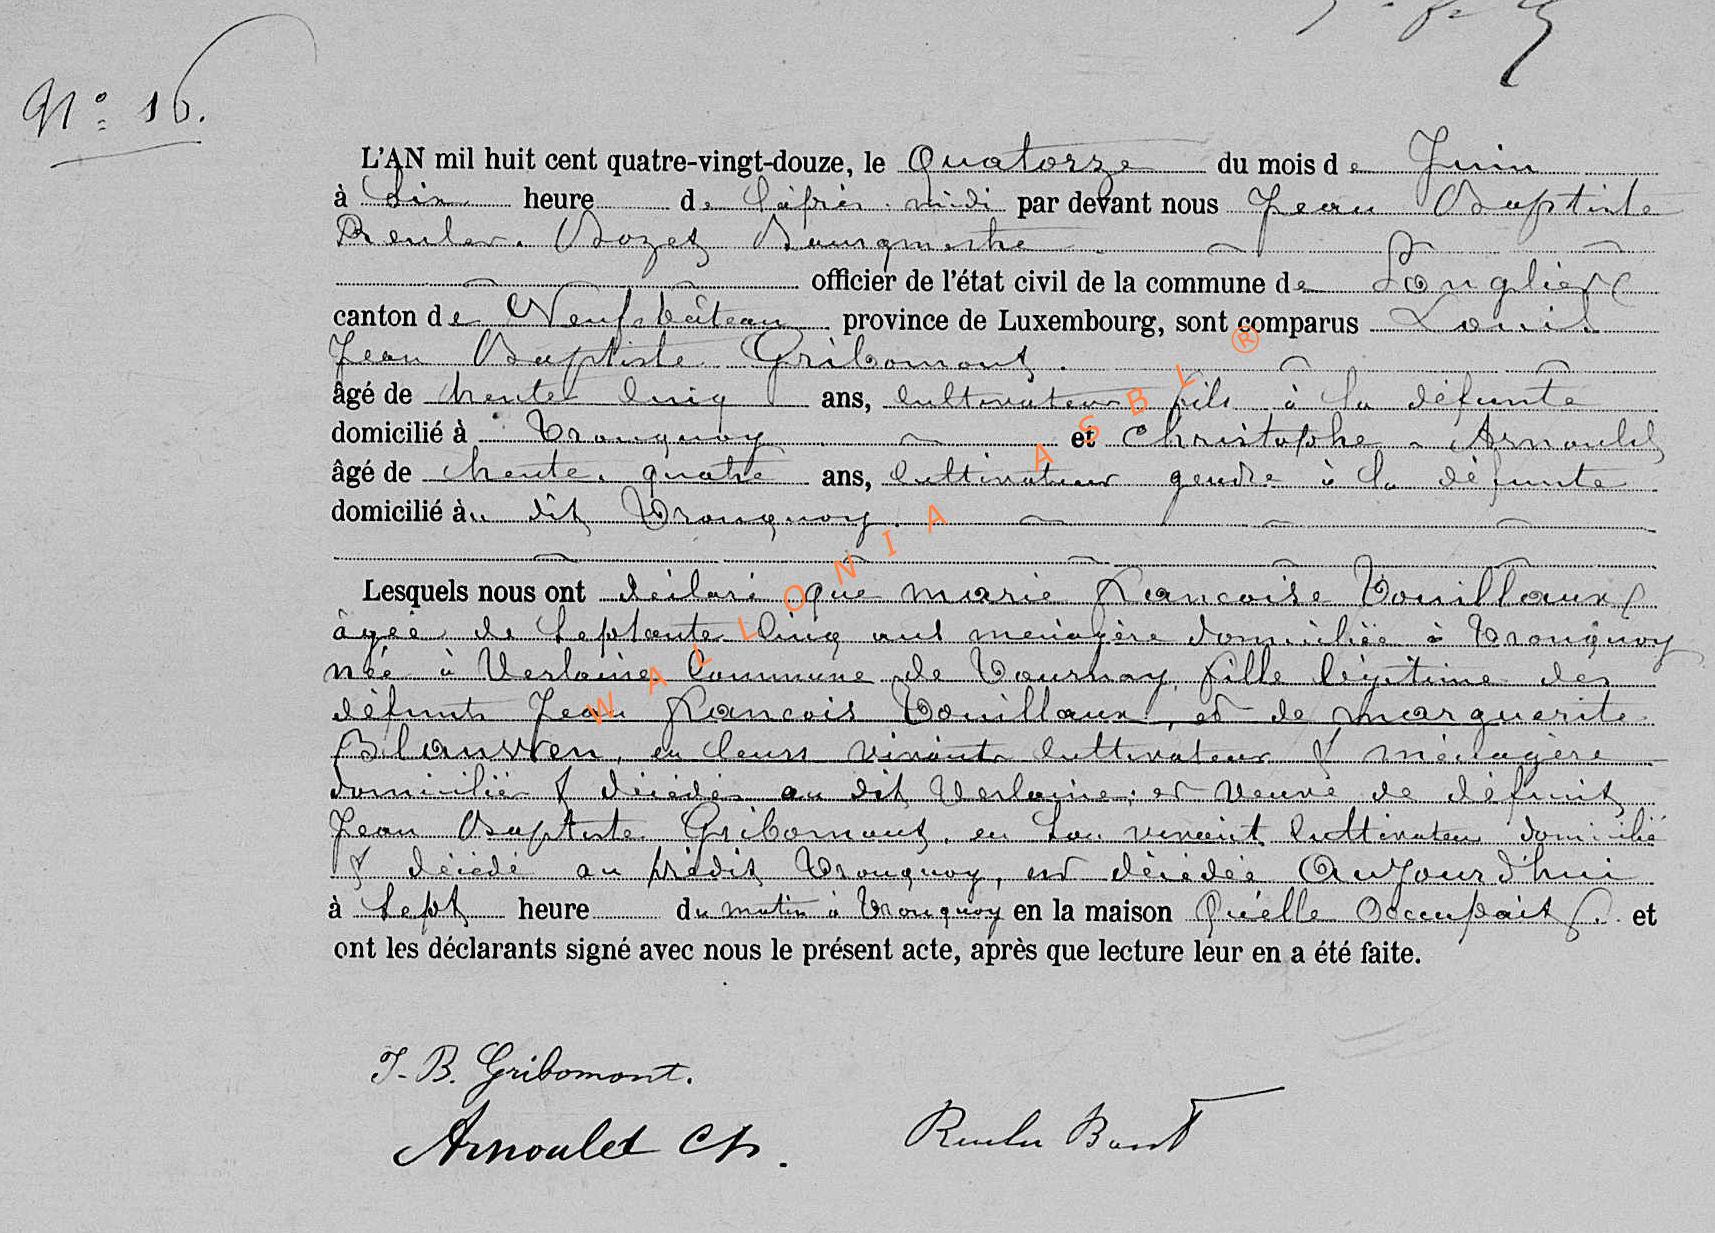 N° 16.
L'AN mil huit cent quatre-vingt-douze, le Quatorze du mois de Juin
à Six heure de l'après-midi par devant nous Jean Baptiste
Reuler. Bozet Bourgmestre
officier de l'état civil de la commune de Longlier
canton de Neufchâteau province de Luxembourg, sont comparus Louis
Jean Baptiste Gribomont.
âgé de trente cinq ans, cultivateur fils à la défunte
domicilié à Tronquoy et Christophe Arnould
âgé de trente quatre ans, cultivateur gendre à la défunte
domicilié au dit Tronquoy.
Lesquels nous ont déclaré que marie francoise Bouillaux
âgée de septante cinq ans ménagère domiciliée à Tronquoy
née à Verlaine commune de Tournay, fille légitime des
défunts Jean francois Bouillaux, et de marguerite
en leurs vivants cultivateur & ménagère
domiciliés & décédés au dit Verlaine; et veuve de défunt
Jean Baptiste Gribomont, en son vivant cultivateur domicilié
& décédé au prédit Tronquoy, est décédée Aujourd'hui
à Sept heure du matin à Tronquoy en la maison Qu'elle occupait. et
ont les déclarants signé avec nous le présent acte, après que lecture leur en a été faite.
J. B. Gribomont.
Arnould Ch.
WALLONIA ASBL ®